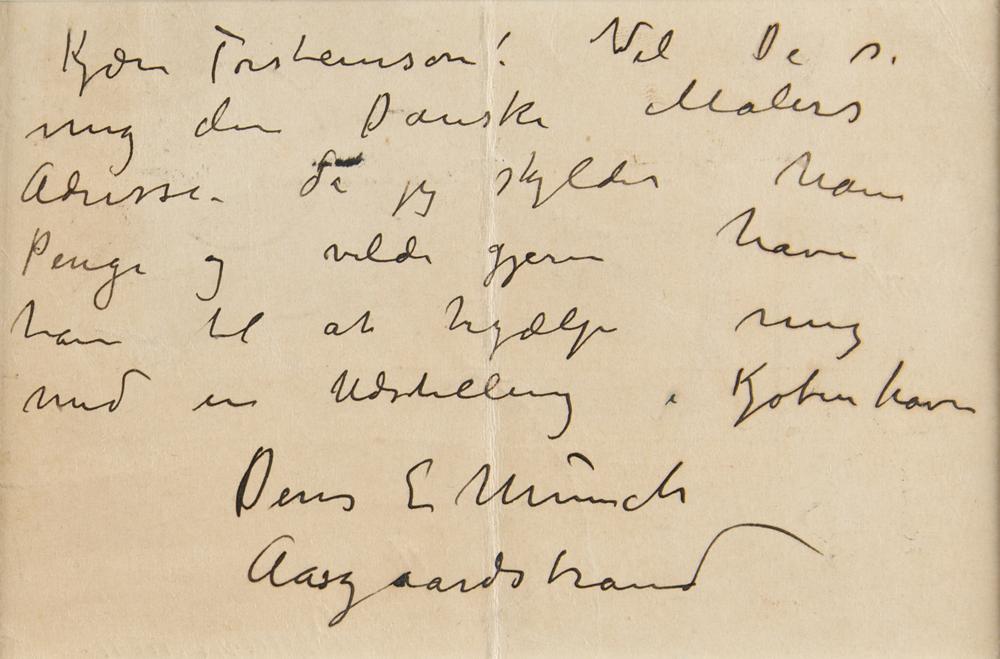 Kjære Torsteinson! Vil De s.
mig den Danske Malers
Adresse. Da jeg skylder ham
Penge og vilde gjerne have
ham til at hjælpe mig
med en Udstilling i Kjøbenhavn
Deres E Munch
Aasgaardstrand